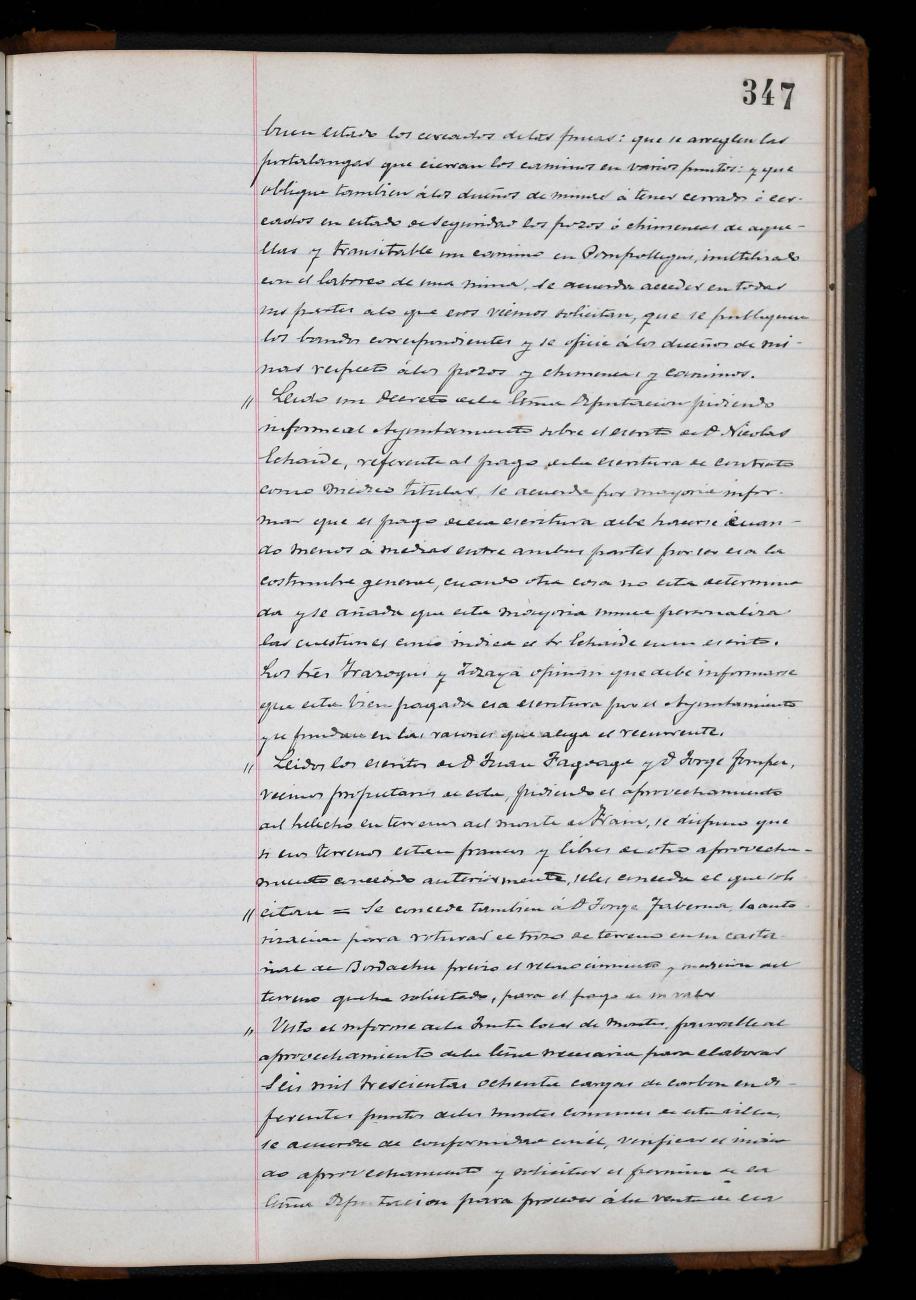 347
buen estado los cercados de las fincas: que se arreglen las
portalangas que cierran los caminos en varios puntos: y que
oblique tambien á los dueños de minas á tener cerrados ó cer-
cados en estado de seguridad los pozos ó chimeneas de aque-
llas y transitable un camino en inutilizado
con el laboreo de una mina, se acuerda acceder en todas
sus partes a lo que esos vecinos solicitan, que se publiquen
los bandos correspondientes y se oficie á los dueños de mi-
nas respecto á los pozos y chimeneas y caminos.
" Leido un Decreto de la Excma Diputacion pidiendo
informe al Ayuntamiento sobre el escrito de D Nicolas
Echaide, referente al pago de la escritura de contrato
como Médico titular, se acuerda por mayoria infor-
mar que el pago de esa escritura debe hacerse cuan-
do menos á medias entre ambas partes por ser esa la
costumbre general, cuando otra cosa no esta determina
da y se añada que esta mayoria nunca personaliza
las cuestiones como indica el Sr Echaide en su escrito.
Los Sres Irazoqui y opinan que debe informarse
que esta bien pagada esa escritura por el Ayuntamiento
y se fundan en las razones que alega el recurrente.
" Leidos los escritos de D Juan Fagoaga y D Jorge
vecinos propietarios de esta, pidiendo el aprovechamiento
del helecho en terrenos del monte de se dispuso que
si esos terrenos estan francos y libres de otro aprovecha-
miento concedido anteriormente, se les conceda el que soli
" citan = Se concede tambien á D Jorge Taberna, la auto
rizacion para roturar el trozo de terreno en su casta-
ñal de Bordachu previo el reconocimiento y medicion del
terreno que ha solicitado, para el pago de su valor
" Visto el informe de la Junta local de Montes, favorable al
aprovechamiento de la leña necesaria para elaborar
Seis mil trescientas ochenta cargas de carbon en di-
ferentes puntos de los montes comunes de esta villa,
se acuerda de conformidad con él, verificar el indica
do aprovechamiento y solicitar el permiso de la
Excma Diputacion para proceder á la venta de esa